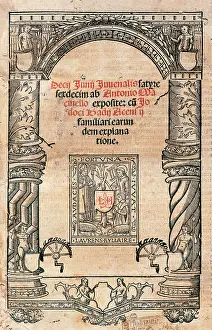 Decij Junij Juvenalis satyre
sexdecim ab Antonio Ma
cinello exposite: cũ Jo
doci Badij Ascensij
familiari earun
dem explana
tione.
FORTVNA